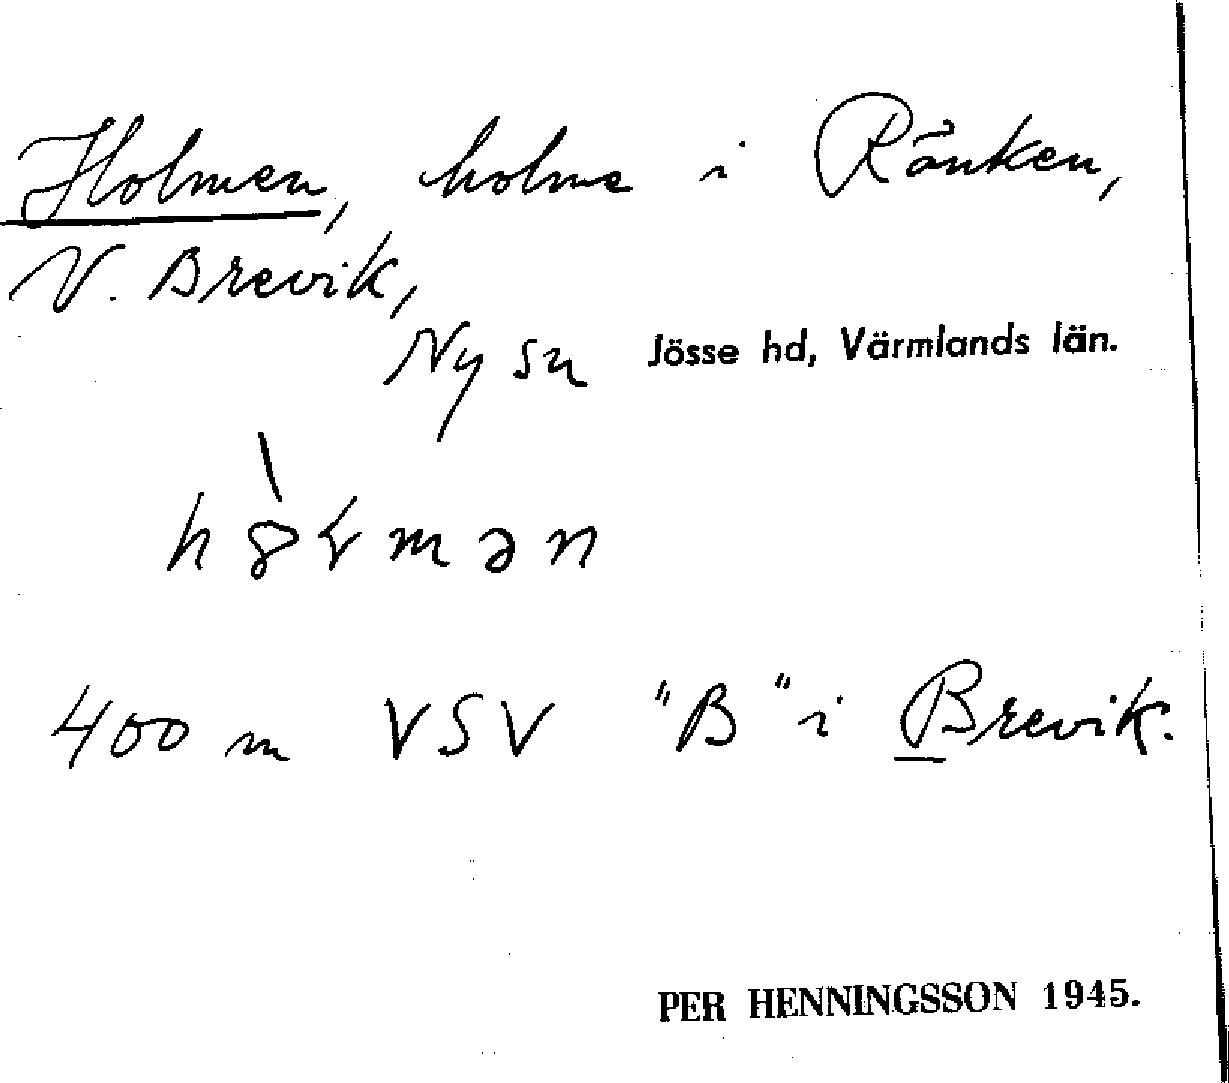 Holmen, holme i Ränken,
V. Brevik,
Ny sn Jösse hd, Värmlands län.
400 m VSV "B" i Brevik.
PER HENNINGSSON 1945.